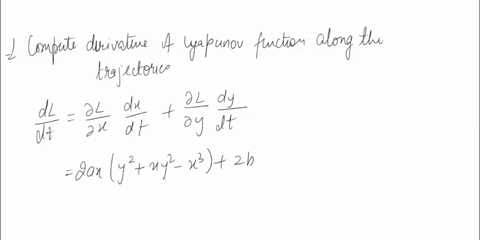 1/ Compute derivative of Lyapunov function along the
trajectories
dL/dt = ∂L/∂x dx/dt + ∂L/∂y dy/dt
= 2ax (y² + xy² - x³) + 2b